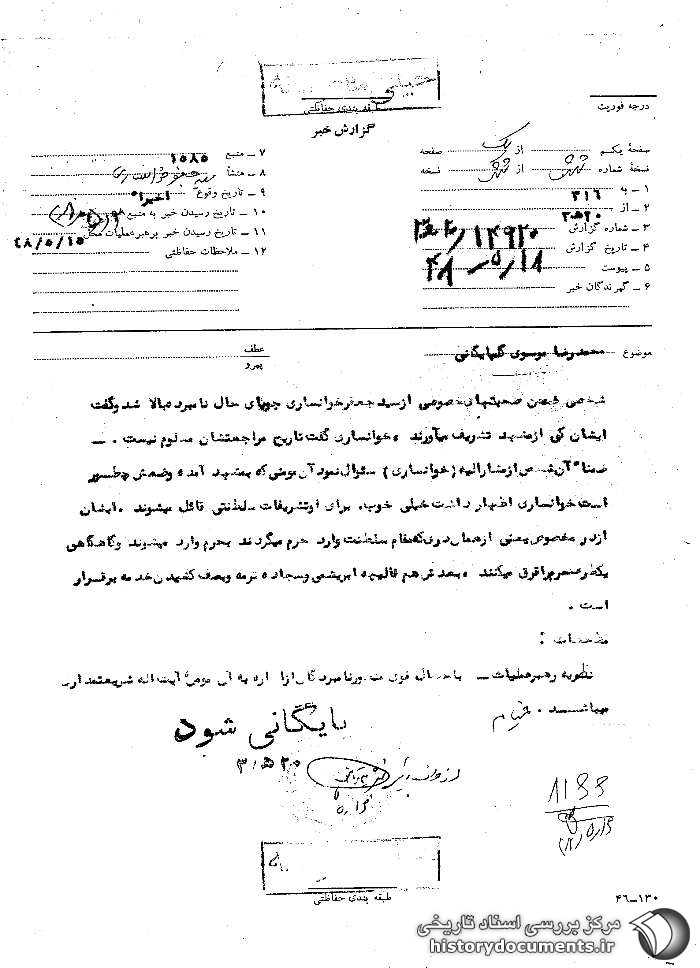 خیلی محرمانه
طبقه بندی حفاظتی
گزارش خبر
درجه فوریت
صفحهٔ یکم از یک صفحه
نسخهٔ شماره شش از شش نسخه
۱ ــ به ۳۱۶
۲ ــ از ۲۰ه۳
۳ ــ شمارهٔ گزارش ۱۴۹۲۰/ ۲۰ه۳
۴ ــ تاریخ گزارش ۴۸/۵/۱۸
۵ ــ پیوست
۶ ــ گیرندگان خبر
۷ ــ منبع ۱۰۸۵
۸ ــ منشأ سید جعفر خوانساری
۹ ــ تاریخ وقوع اخیرا"
۱۰ ــ تاریخ رسیدن خبر به منبع
۱۱ ــ تاریخ رسیدن خبر برهبر عملیات محل ۴۸/۵/۱۵
۱۲ ــ ملاحظات حفاظتی
موضوع محمدرضا موسوی گلپایگانی
عطف
پیرو
شخصی ضمن صحبتهای خصوصی از سید جعفر خوانساری جویای حال نامبرده بالا شد و گفت
ایشان کی از مشهد تشریف میآورند ، خوانساری گفت تاریخ مراجعتشان معلوم نیست . ــ
ضمنا" آن شخص از مشارالیه (خوانساری) سئوال نمود آن موقعی که بمشهد آمده وضعش چطور
است خوانساری اظهار داشت خیلی خوب، برای او تشریفات سلطنتی قائل میشوند . ایشان
از در مخصوص یعنی از همان دری که مقام سلطنت وارد حرم میگردند بحرم وارد میشوند و گاهگاهی
یکطرف حرم را قرق میکنند ، بعد فرش هم قالیچه ابریشمی و سجاده ترمه و بصف کشیدن خدمه برقرار
است .
ملاحظات :
نظریه رهبر عملیات ــ
آیت اله شریعتمداری
میباشد . خیام
بایگانی شود
۲۰ه۳
۸۱۶۶
طبقه بندی حفاظتی
۴۶ــ۱۳۰
مرکز بررسی اسناد تاریخی
historydocuments.ir